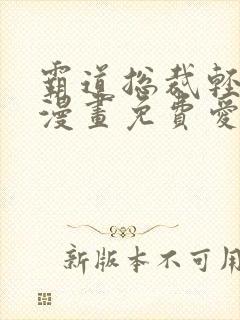 霸道總裁輕
漫畫免費愛
新版本不可用